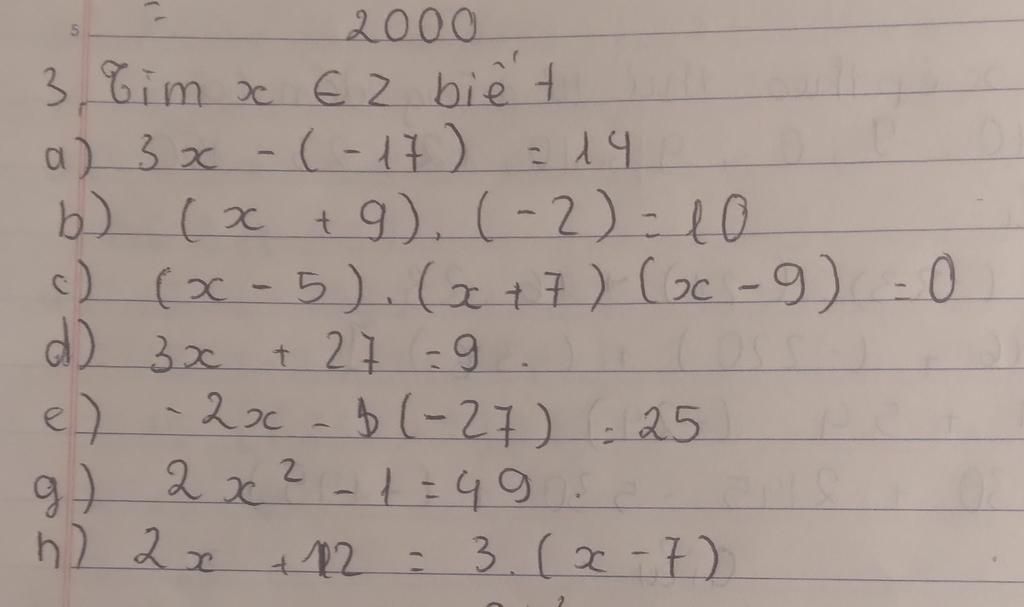 2000
3, Tìm x ∈ Z biết
a) 3x - (-17) = 14
b) (x + 9) . (-2) = 10
c) (x - 5) . (x + 7) (x - 9) = 0
d) 3x + 27 = 9 .
e) - 2x - (-27) = 25
g) 2x² - 1 = 49 .
h) 2x + 12 = 3. (x - 7)